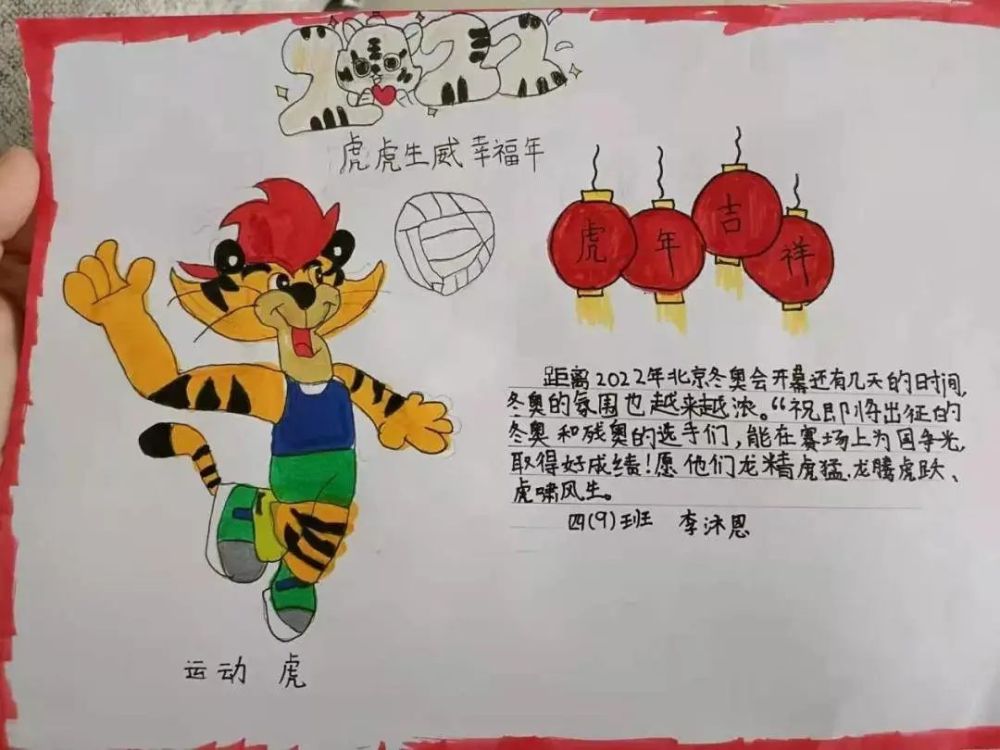 2022
虎虎生威幸福年
虎年吉祥
距离2022年北京冬奥会开幕还有几天的时间,
冬奥的氛围也越来越浓。“祝即将出征的
冬奥和残奥的选手们,能在赛场上为国争光,
取得好成绩!愿他们龙精虎猛、龙腾虎跃、
虎啸风生。
四(9)班 李沐恩
运动 虎